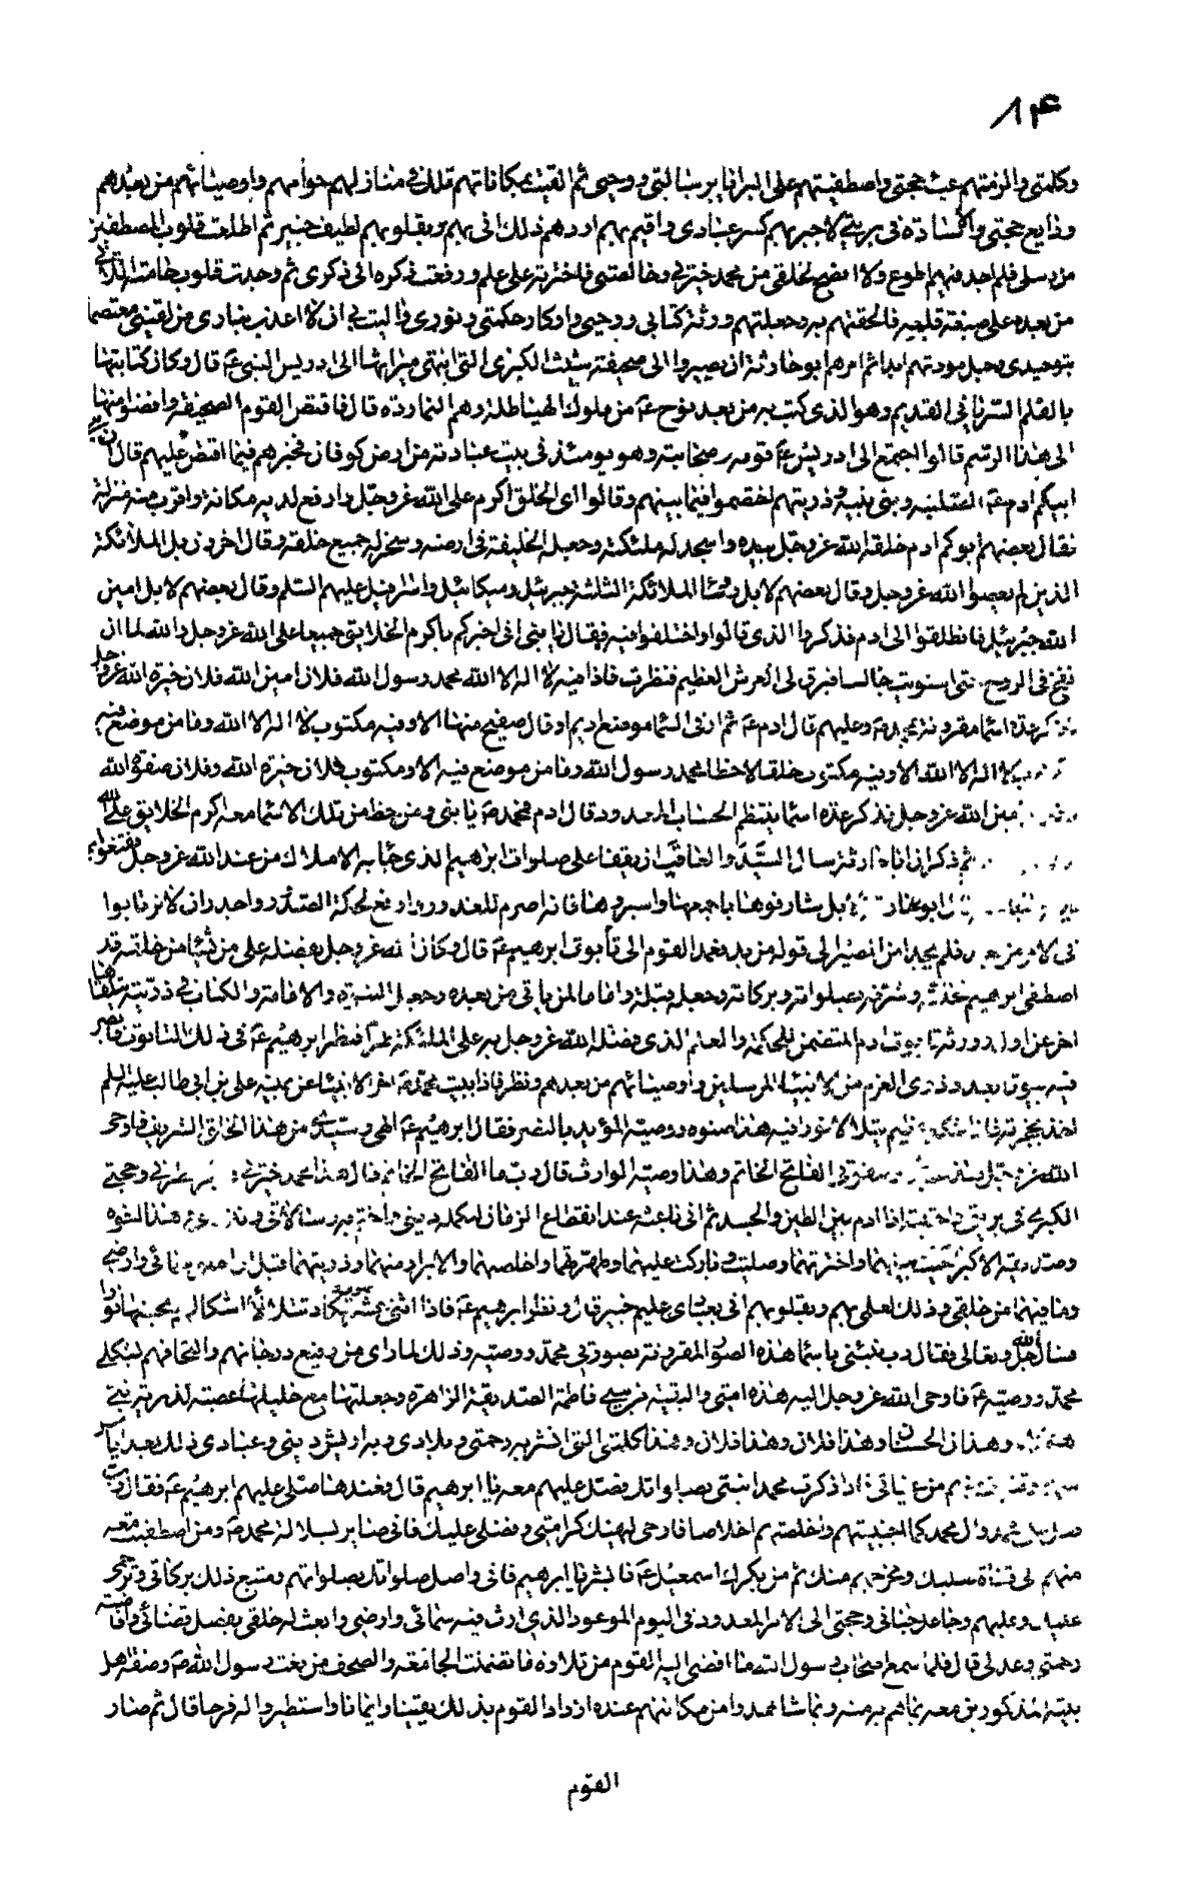 ٨٤
وكلمتي والزمتهم عب حجتي واصطفيتهم على البرايا برسالتي ووحيي ثم القيت بمكاناتهم تلك في منازلهم حوامهم واوصيائهم من بعدهم
ودايع حجتي والسادة في بريتي لاجبر بهم كسر عبادي واقيم بهم اودهم ذلك اني بهم وبقلوبهم لطيف خبير ثم اطلعت قلوب المصطفين
من رسلي فلم اجد فيهم اطوع ولا انصح لخلقي من محمد خيرتي وخالصتي فاخترته على علم ورفعت ذكره الى ذكري ثم وجدت قلوب حامته اللاتي
من بعده على صبغة قلبه فالحقتهم به وجعلتهم ورثة كتابي ووحيي واوكار حكمتي ونوري واليت بي ان لا اعذب بناري من لقيني معتصما
بتوحيدي وحبل مودتهم ابدا ثم امرهم ابو حارثة ان يصيروا الى صحيفة شيث الكبرى التي انتهى ميراثها الى ادريس النبي ع قال وكان كتابتها
بالقلم السرياني القديم وهو الذي كتب به من بعد نوح ع من ملوك الهياطلة وهم النماردة قال فاقتص القوم الصحيفة وافضوا منها
الى هذا الرسم قالوا اجتمع الى ادريس ع قومه وصحابته وهو يومئذ في بيت عبادته من ارض كوفان فخبرهم فيما اقتص عليهم قال ان بني
ابيكم ادم ع الصلبية وبني بنيه وذريتهم اختصموا فيما بينهم وقالوا اي الخلق اكرم على الله عز وجل وارفع لديه مكانة واقرب منه منزلة
فقال بعضهم ابوكم ادم خلقه الله عز وجل بيده واسجد له ملئكته وجعله الخليفة في ارضه وسخر له جميع خلقه وقال اخرون بل الملائكة
الذين لم يعصوا الله عز وجل وقال بعضهم لا بل رؤسا الملائكة الثلثة جبرئيل وميكائيل واسرافيل عليهم السلم وقال بعضهم لا بل امين
الله جبرئيل فانطلقوا الى ادم فذكروا الذي قالوا واختلفوا فيه فقال يا بني اني اخبركم باكرم الخلايق جميعا على الله عز وجل والله لما ان
نفخ في الروح حتى استويت جالسا فبرق لي العرش العظيم فنظرت فاذا فيه لا اله الا الله محمد رسول الله فلان امين الله فلان خيرة الله عز وجل
فذكر عدة اسما مقرونة بمحمد ص وعليهم قال ادم ع ثم لم ار في السما موضع اديم او قال صفيح منها الا وفيه مكتوب لا اله الا الله وما من موضع فيه
مكتوب لا اله الا الله الا وفيه مكتوب خلقا لا خطا محمد رسول الله وما من موضع فيه الا ومكتوب فلان خيرة الله وفلان صفوة الله
امين الله عز وجل فذكر عدة اسما ينتظم الحساب المعدود قال ادم فمحمد ص يا بني ومن خط من تلك الاسما معه اكرم الخلايق على الله
ثم ذكر ان ابا حارثة سال السيد والعاقب ان يقفا على صلوات ابراهيم الذي جا به الاملاك من عند الله عز وجل فقنعوا
قال ابو حارثة بل شارفوها باجمعها واسبروها فانه اصرم للعذور وارفع لحكة الصدور واجدر ان لا ترتابوا
في الامر من بعد فلم يجدا من المصير الى قوله من بد فعمد القوم الى تابوت ابرهيم ع قال وكان الله عز وجل بفضله على من يشا من خلقه قد
اصطفى ابرهيم بخلته وشرفه بصلواته وبركاته وجعله قبلة واماما لمن ياتي من بعده وجعل النبوة والامامة والكتاب في ذريته يتلقاها
اخر عن اول وورثه تابوت ادم المتضمن للحكمة والعلم الذي فضله الله عز وجل به على الملئكة طرا فنظر ابرهيم ع في ذلك التابوت فابصر
فيه بيوتا بعدد ذوي العزم من الانبياء المرسلين واوصيائهم من بعدهم ونظر فاذا بيت محمد ص اخر الانبيا عن يمينه علي بن ابي طالب عليه السلم
اخذ بحجزته فاذا شكل عظيم يتلالا نورا فيه هذا صنوه ووصيه المؤيد بالنصر فقال ابرهيم ع الهي وسيدي من هذا الخلق الشريف فاوحى
الله عز وجل هذا عبدي وصفوتي الفاتح الخاتم وهذا وصيه الوارث قال رب ما الفاتح الخاتم قال هذا محمد خيرتي وحجتي
الكبرى في بريتي نباته واجتبيته اذا ادم بين الطين والجسد ثم اني باعثه عند انقطاع الزمان لتكملة ديني وخاتم به رسالاتي ونذري وهذا اخوه
وصديقه الاكبر اخيت بينهما واخترتهما وصليت وباركت عليهما وطهرتهما واخلصتهما والابرار منهما وذريتهما قبل ان اخلق سمائي وارضي
وما فيهما من خلقي وذلك لعلمي بهم وبقلوبهم اني بعبادي عليم خبير قال ونظر ابرهيم ع فاذا اثني عشر تكاد تتلالا اشكالها بحسنها نورا
فسال ربه جل وتعالى فقال رب نبئني باسما هذه الصور المقرونة بصورتي محمد ووصيه وذلك لما راى من رفيع درجاتهم والتحاقهم بشكلي
محمد ووصيه ع فاوحى الله عز وجل اليه هذه امتي والبقية من نبيي فاطمة الصديقة الزاهرة وجعلتها مع خليلها عصبة لذرية نبيي
هؤلاء وهذان الحسنان وهذا فلان وهذا فلان وهذا كلمتي التي انشر به رحمتي في بلادي وبه انتاش ديني وعبادي ذلك بعد اياس
منهم وقنوط منهم من غياثي فاذا ذكرت محمدا نبيي بصلواتك فصل عليهم معه يا ابرهيم قال فعندها صلى عليهم ابرهيم ع فقال رب
صل على محمد وال محمد كما اجتبيتهم واخلصتهم اخلاصا فاوحى ليهنك كرامتي وفضلي عليك فاني صاير بسلالة محمد ص ومن اصطفيت معه
منهم الى قناة صلبك ومخرجهم منك ثم من بكرك اسمعيل ع فابشر يا ابرهيم فاني واصل صلواتك بصلواتهم ومتبع ذلك بركاتي وترحمي
عليك وعليهم وجاعل حناني وحجتي الى الامد المعدود في اليوم الموعود الذي ارث فيه سمائي وارضي وابعث له خلقي بفصل قضائي وافاضة
رحمتي وعدلي قال فلما سمع اصحاب رسول الله ما افضى اليه القوم من تلاوة ما تضمنت الجامعة والصحف من نعت رسول الله ص وصفة اهل
بيته المذكورين معه بما هم به منه وبما شاهدوا من مكانتهم عنده ازداد القوم بذلك يقينا وايمانا واستطيروا له فرحا قال ثم صار
القوم